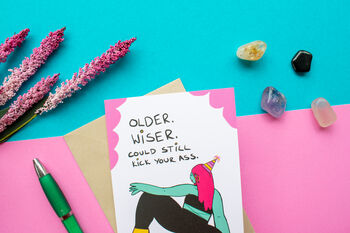 OLDER.
WiSER.
COULD STiLL
KiCK YOUR ASS.